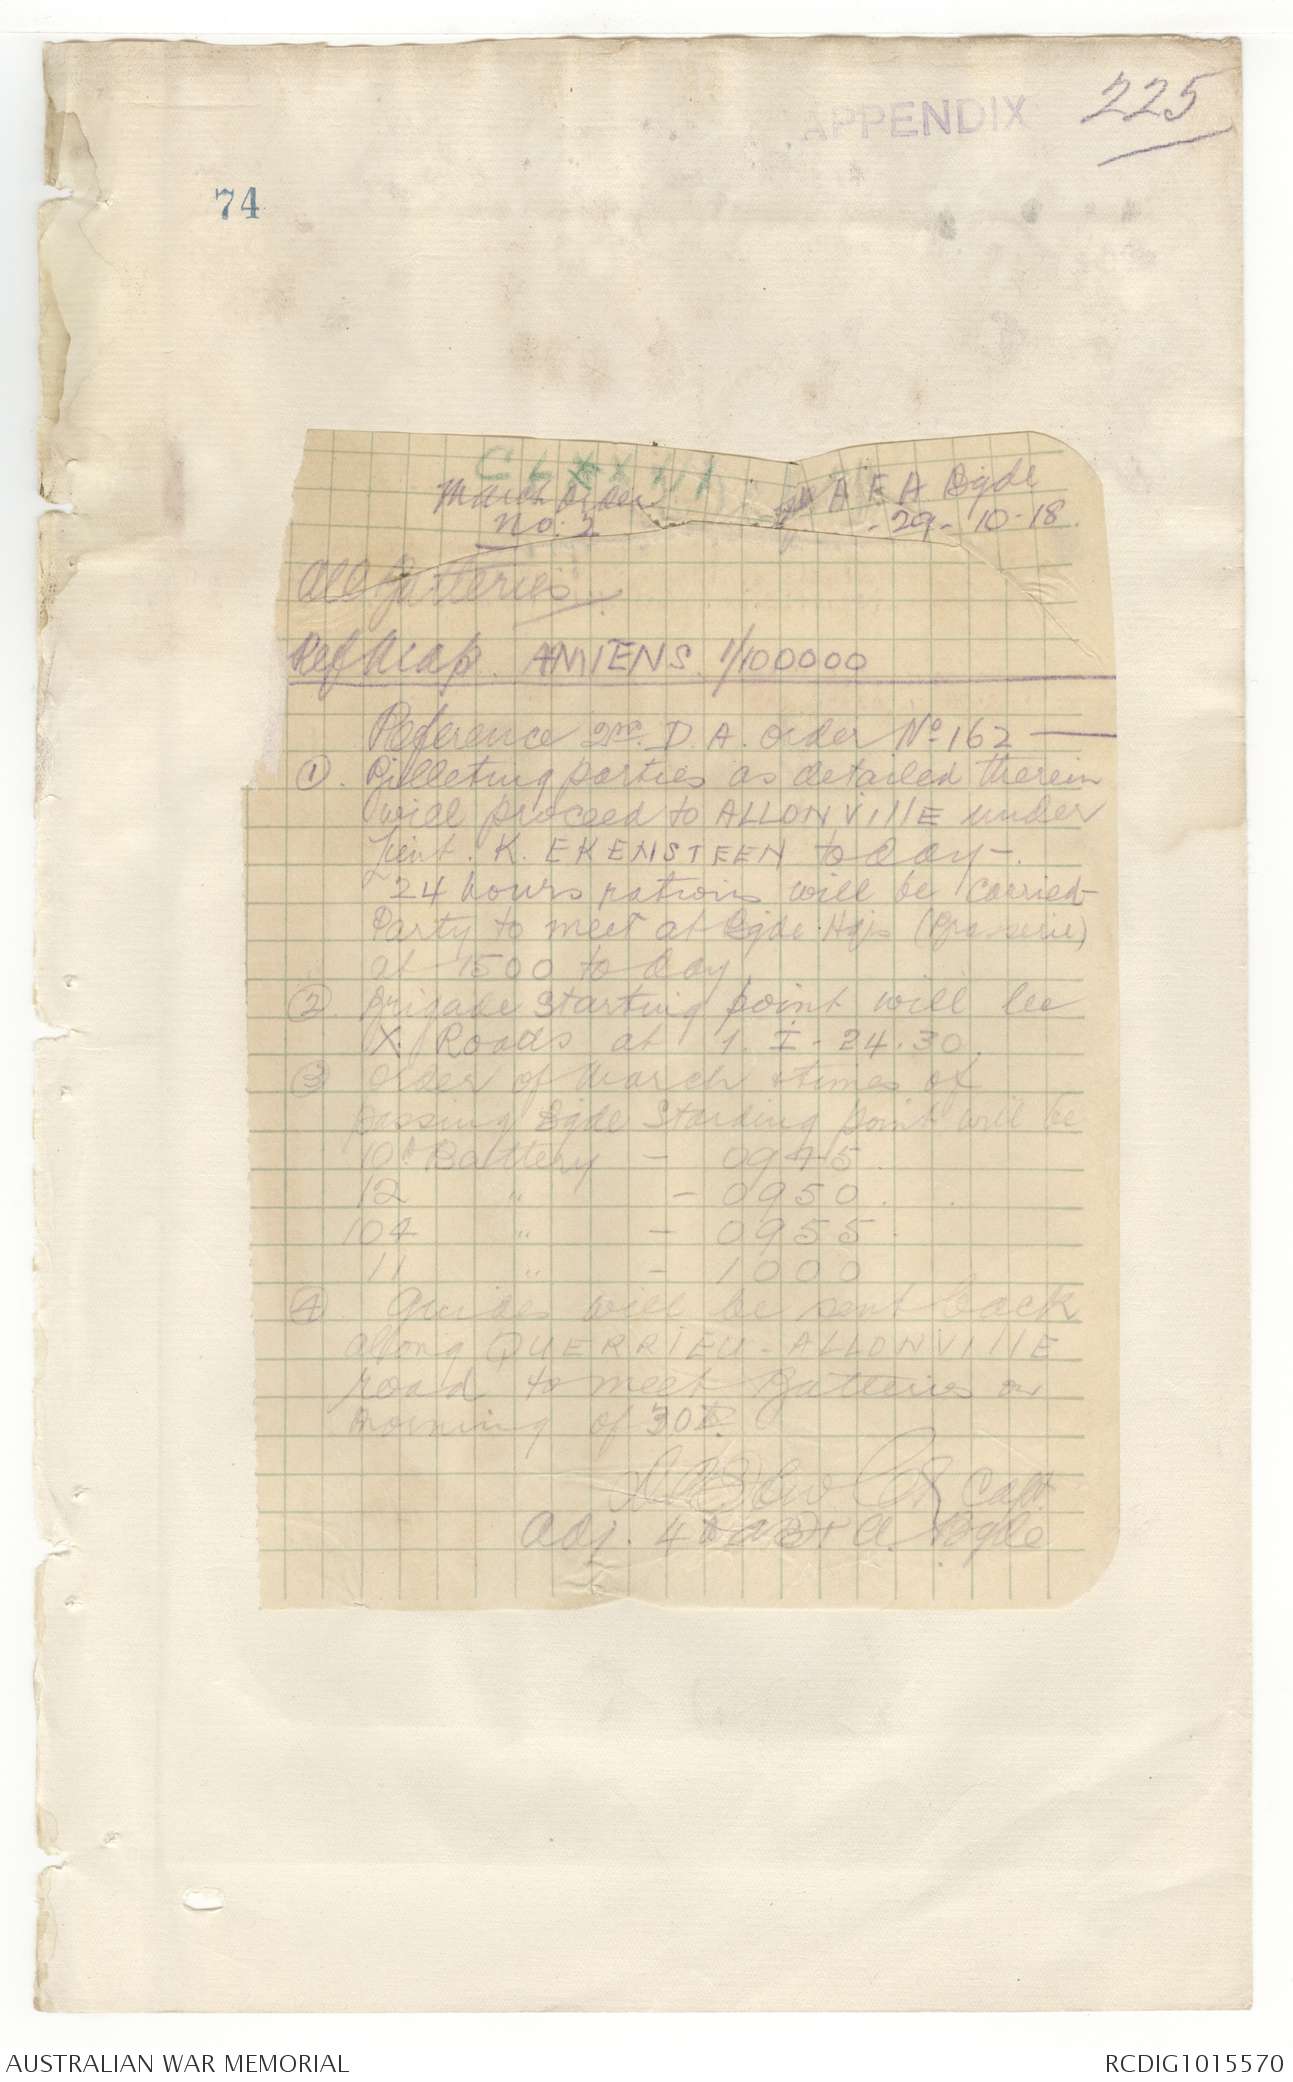 APPENDIX
225
74
March Order
No. 2
A F A Bgde
29-10-18
All Batteries.
Ref Map. AMIENS 1/100000
Reference 2nd. D. A. order No 162 —
(1). Billeting parties as detailed therein
will proceed to ALLONVILLE under
Lieut. K. EKENSTEEN today.
24 hours rations will be carried
Party to meet at Bgde Hqs (Brasserie)
at 1500 today
(2). Brigade Starting point will be
X Roads at 1. I. 24.30.
(3) Order of March & times of
passing Bgde Starting point will be
10th Battery - 0945.
12 " - 0950.
104 " - 0955.
11 " - 1000
(4). Guides will be sent back
along QUERRIEU-ALLONVILLE
road to meet Batteries on
morning of 30th.
Capt.
Adj. 4th A Bgde
AUSTRALIAN WAR MEMORIAL
RCDIG1015570